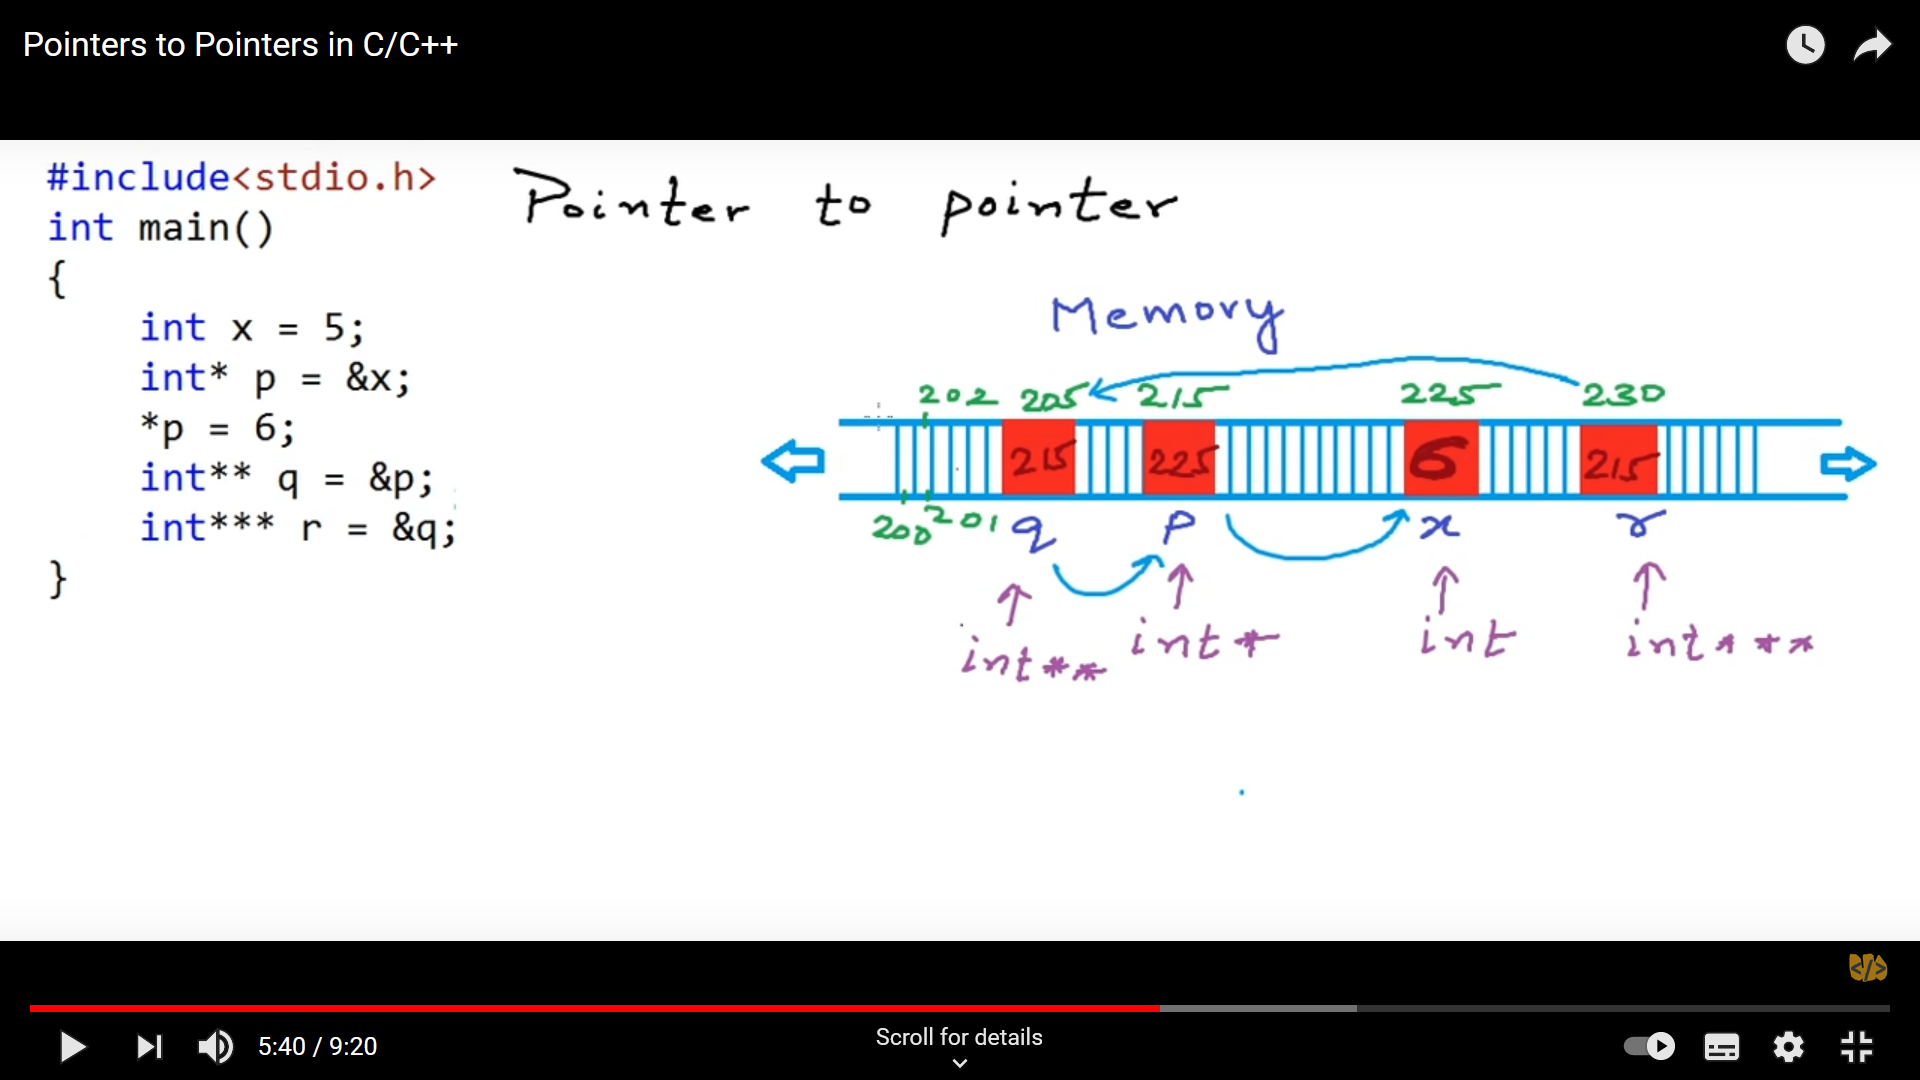 Pointers to Pointers in C/C++
#include<stdio.h>
int main()
{
int x = 5;
int* p = &x;
*p = 6;
int** q = &p;
int*** r = &q;
}
Pointer to pointer
Memory
202 205 215 225 230
215 225 6 215
200 201 q p x r
int** int* int int***
5:40 / 9:20
Scroll for details